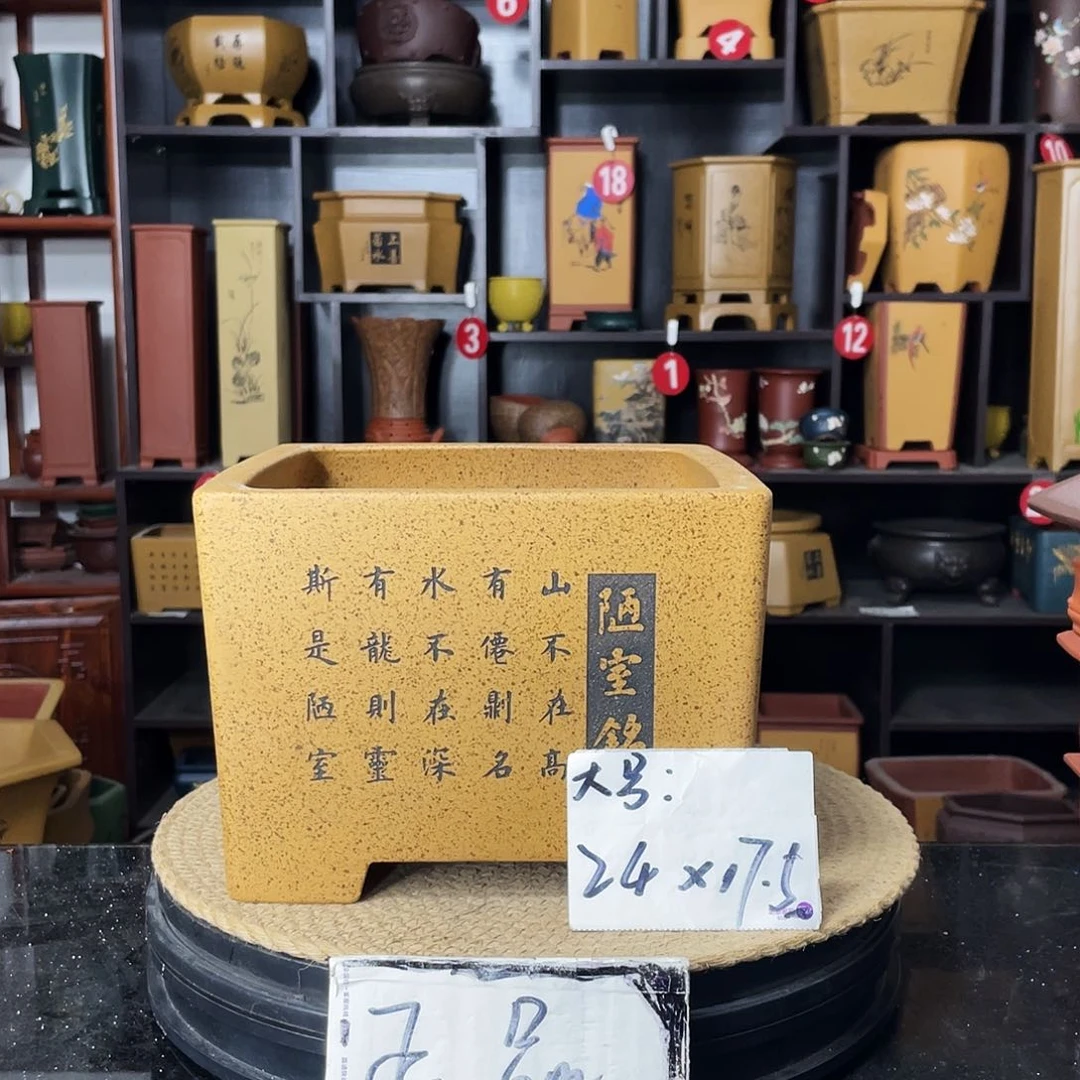 6
4
10
18
3
1
12
上善
若水
陋室銘
山不在高
有僊則名
水不在深
有龍則靈
斯是陋室
大号:
24×17.5
正品